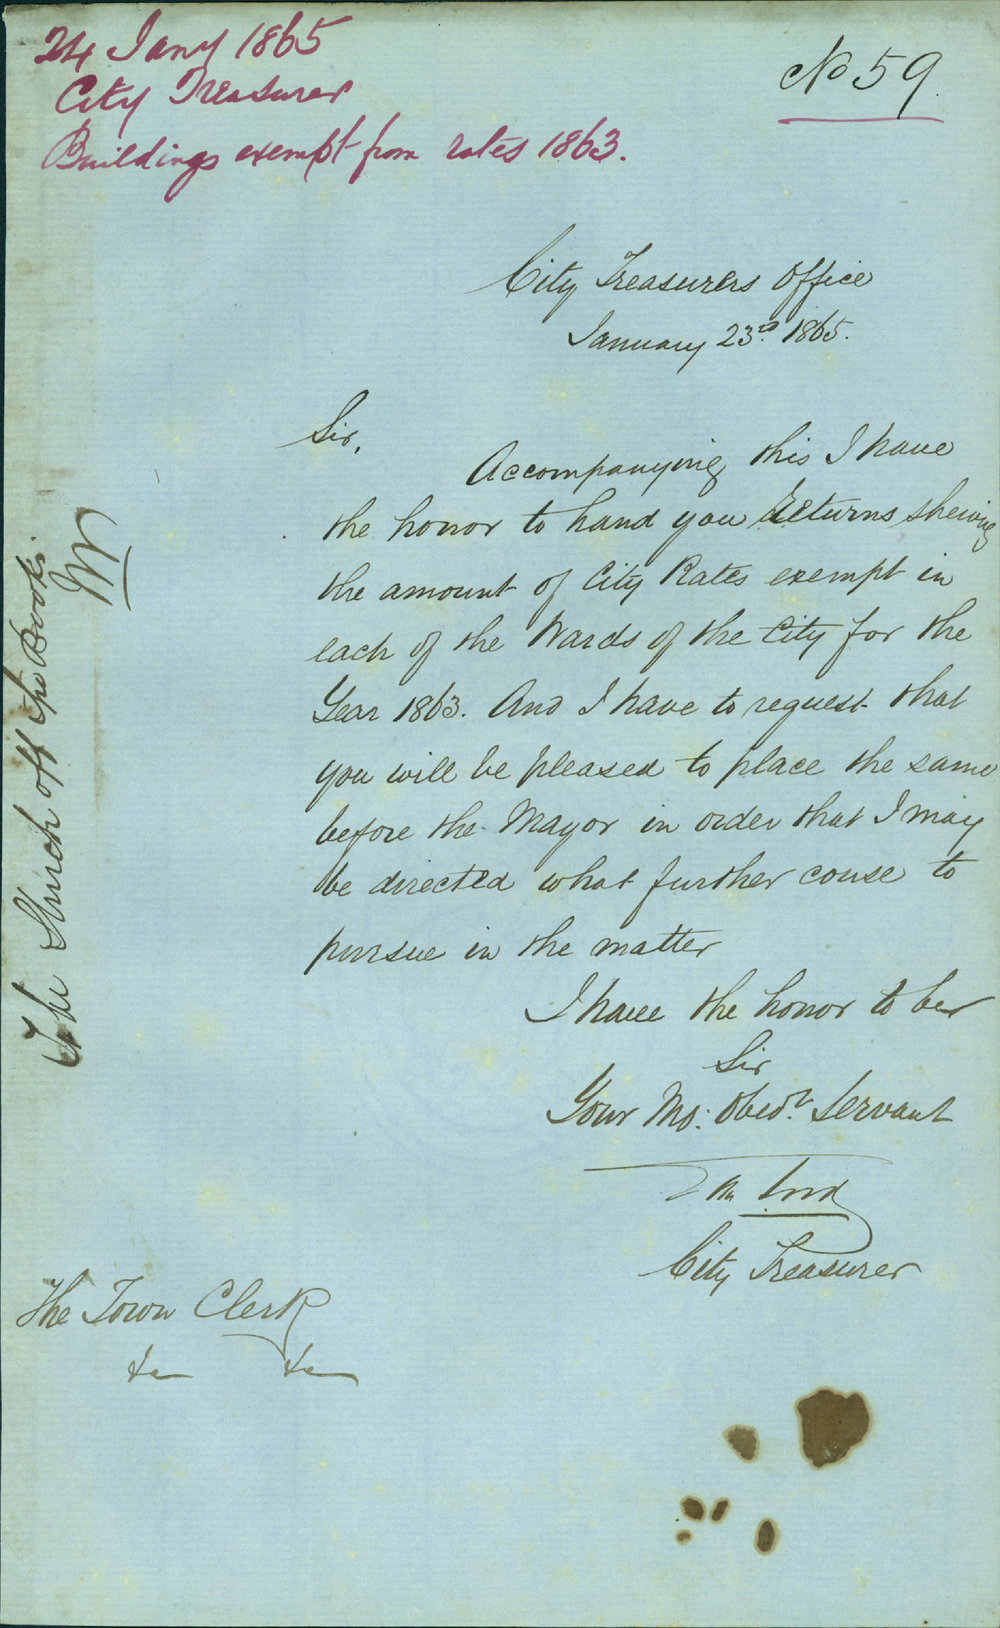 24 Jany 1865
City Treasurer
Buildings exempt from rates 1863.
No 59
City Treasurers Office
January 23rd 1865.
Sir,
Accompanying this I have
the honor to hand you Returns shewing
the amount of City Rates exempt in
each of the Wards of the City for the
Year 1863. And I have to request that
you will be pleased to place the same
before the Mayor in order that I may
be directed what further couse to
pursue in the matter
I have the honor to be
Sir
Your Mo: Obedt. Servant
City Treasurer
The Town Clerk
&c &c
To be Struck off the Books.